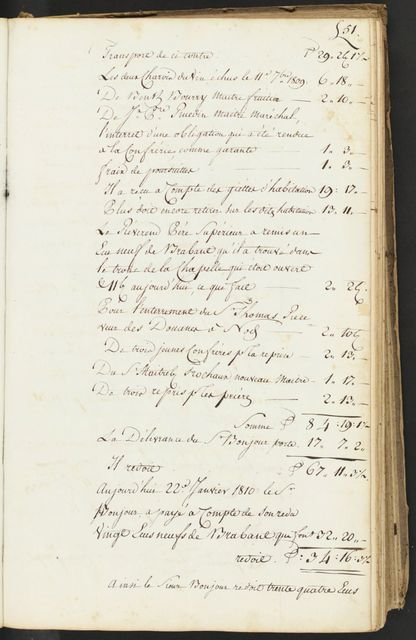 51.
Transport de ci contre P 29. 26. 1/2
Les deux Charois du vin échus le 11e 7bre 1809. 6. 18. —
De Bourry Maitre fruitier — 2. 10. —
De Maitre maréchal,
l'interet d'une obligation qui a été rendue
a la Confrérie comme garante — 1. 3. —
fraix de poursuittes — 1. 3. —
Il a reçu a Compte des giettes d'habitation 19. 17. —
Plus doit encore retirer sur les dits habitation 13. 11. —
Le Révérend Père Superieur a remis un
Ecu neuf de Brabant qu'il a trouvé dans
le tronc de la Chapelle qui etoit ouvert
aujourd'hui, ce qui fait — 2. 26.
Pour l'enterrement du Sr Thomas Rece
veur des Douanes a — 2. 10
De trois jeunes Confrères pr la reprise — 2. 13. —
Du Sr nouveau Maitre — 1. 17. —
De trois pr les prières — 2. 13. —
Somme P 84. 19. 1/2
La Délivrance du Sr Bonjour porte 17. 7. 2.
Il redoit P 67. 11. 3/2
Aujourd'hui 22e Janvier 1810 le Sr
Bonjour, a payé a Compte de son redu
vingt Ecus neufs de Brabant qui font 32. 20. —
redoit P. 34. 16. 3/2
Ainsi le Sieur Bonjour redoit trente quatre Ecus